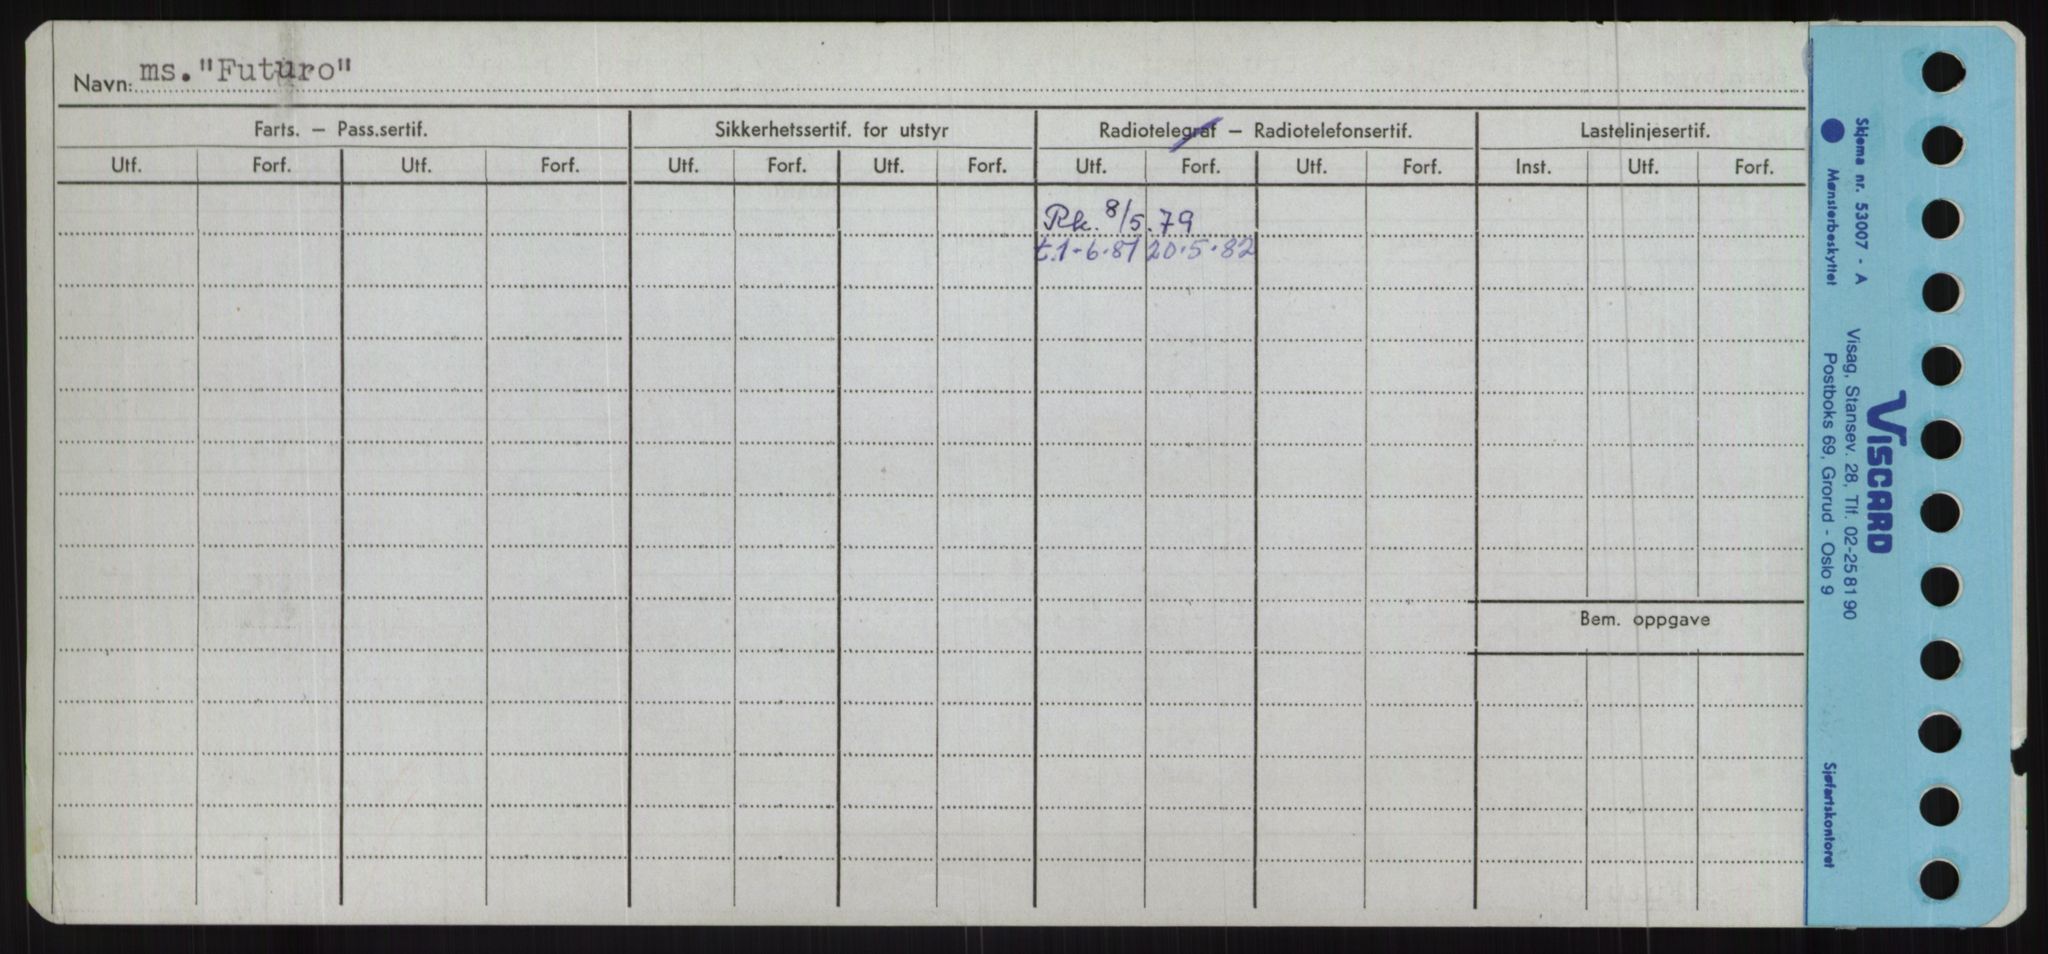 Navn: ms. "Futuro"
Farts. – Pass.sertif. Sikkerhetssertif. for utstyr Radiotelegraf – Radiotelefonsertif. Lastelinjesertif.
Utf. Forf. Utf. Forf. Utf. Forf. Utf. Forf. Utf. Forf. Utf. Forf. Inst. Utf. Forf.
Rk. 8/5.79
t.1-6-81 20-5-82
Bem. oppgave
Skjema nr. 53007 - A
Mønsterbeskyttet
VISCARD
Visag, Stansev. 28, Tlf. 02-25 81 90
Postboks 69, Grorud - Oslo 9
Sjøfartskontoret